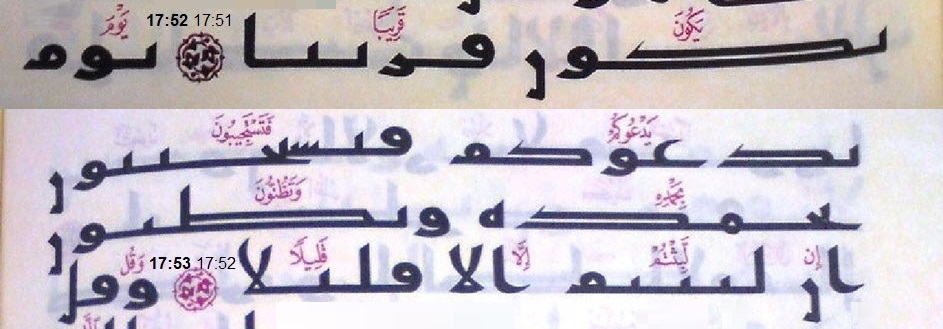 يَكُونَ قَرِيبًا 17:51 17:52 يَوْمَ
يكون قريبا يوم
يَدْعُوكُمْ فَتَسْتَجِيبُونَ
يدعوكم فتستجيبون
بِحَمْدِهِ وَتَظُنُّونَ
بحمده وتظنون
إِن لَّبِثْتُمْ إِلَّا قَلِيلًا 17:52 17:53 وَقُل
ان لبثتم الا قليلا وقل